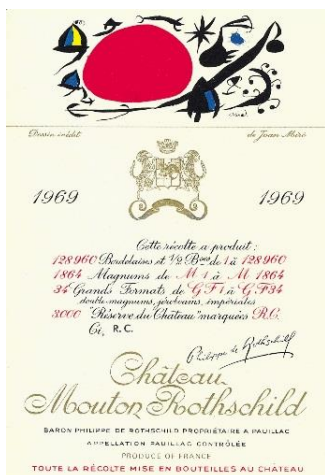 Dessin inédit de Joan Miró
1969 1969
Cette récolte a produit :
128960 Bordelaises et ½ Bses de 1 à 128960
1864 Magnums de M 1 à M 1864
34 Grands Formats de G F 1 à G F 34
double-magnums, jéroboams, impériales
3000 "Réserve du Château" marquées R.C.
Ct. R. C.
Philippe de Rothschild
Château
Mouton Rothschild
BARON PHILIPPE DE ROTHSCHILD PROPRIÉTAIRE A PAUILLAC
APPELLATION PAUILLAC CONTRÔLÉE
PRODUCE OF FRANCE
TOUTE LA RÉCOLTE MISE EN BOUTEILLES AU CHÂTEAU